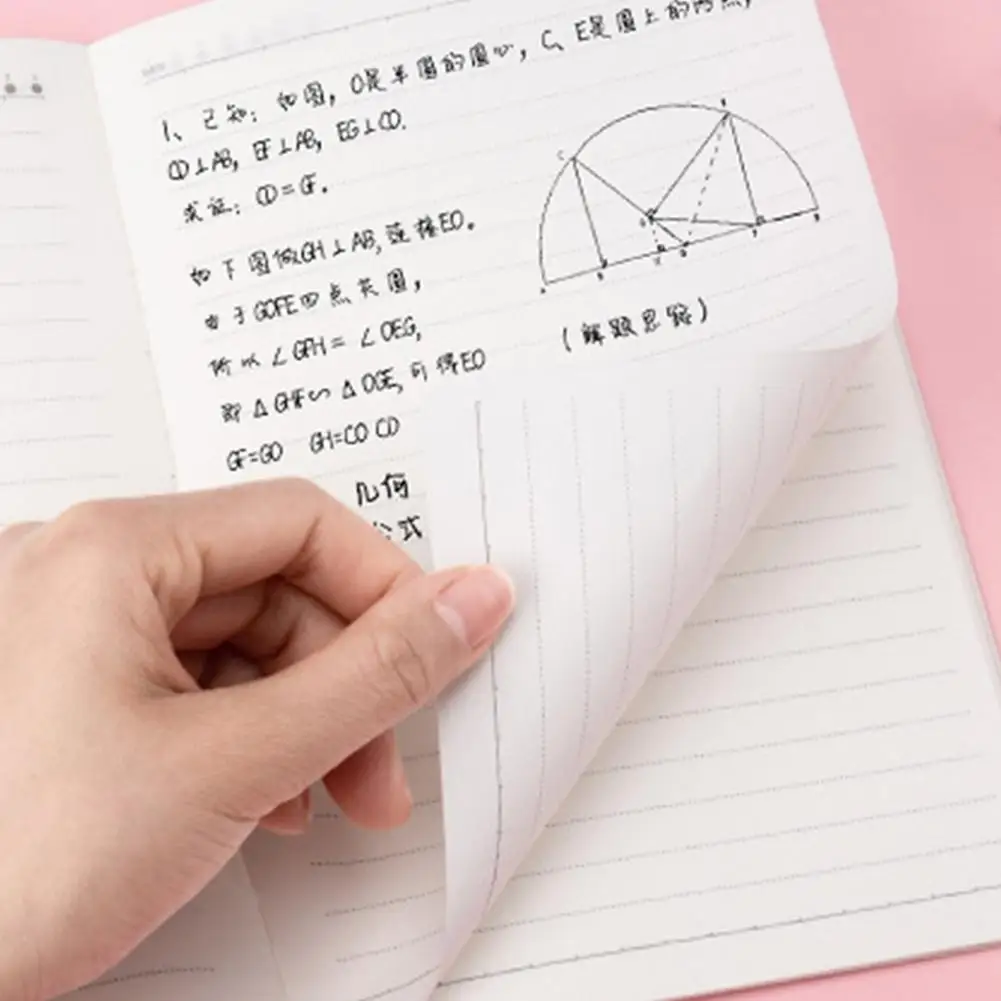 1、已知：如图，O是半圆的圆心，C、E是圆上的两点，
CD⊥AB，EF⊥AB，EG⊥CO.
求证：CD=GF.
如下图做GH⊥AB，连接EO。
由于GOFE四点共圆，
所以∠GFH=∠OEG，
即△GHF∽△OGE，可得EO
GF=GO GH=CO CD
（解题思路）
几何
公式